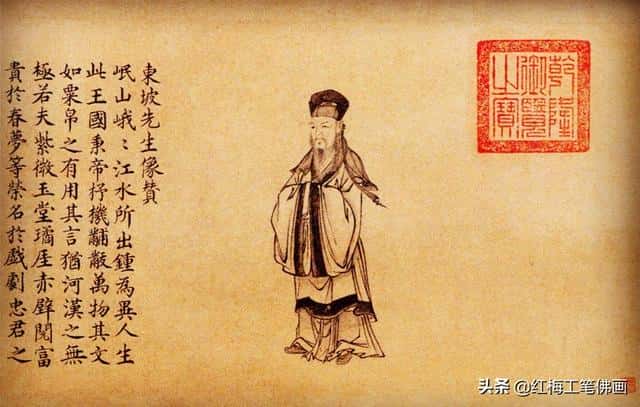 東坡先生像贊
岷山峨〻江水所出鍾為異人生
此王國秉帝杼機黼黻萬物其文
如粟帛之有用其言猶河漢之無
極若夫紫微玉堂璚厓赤壁閱富
貴於春夢等榮名於戲劇忠君之
乾隆
御覽
之寶
头条 @红梅工笔佛画